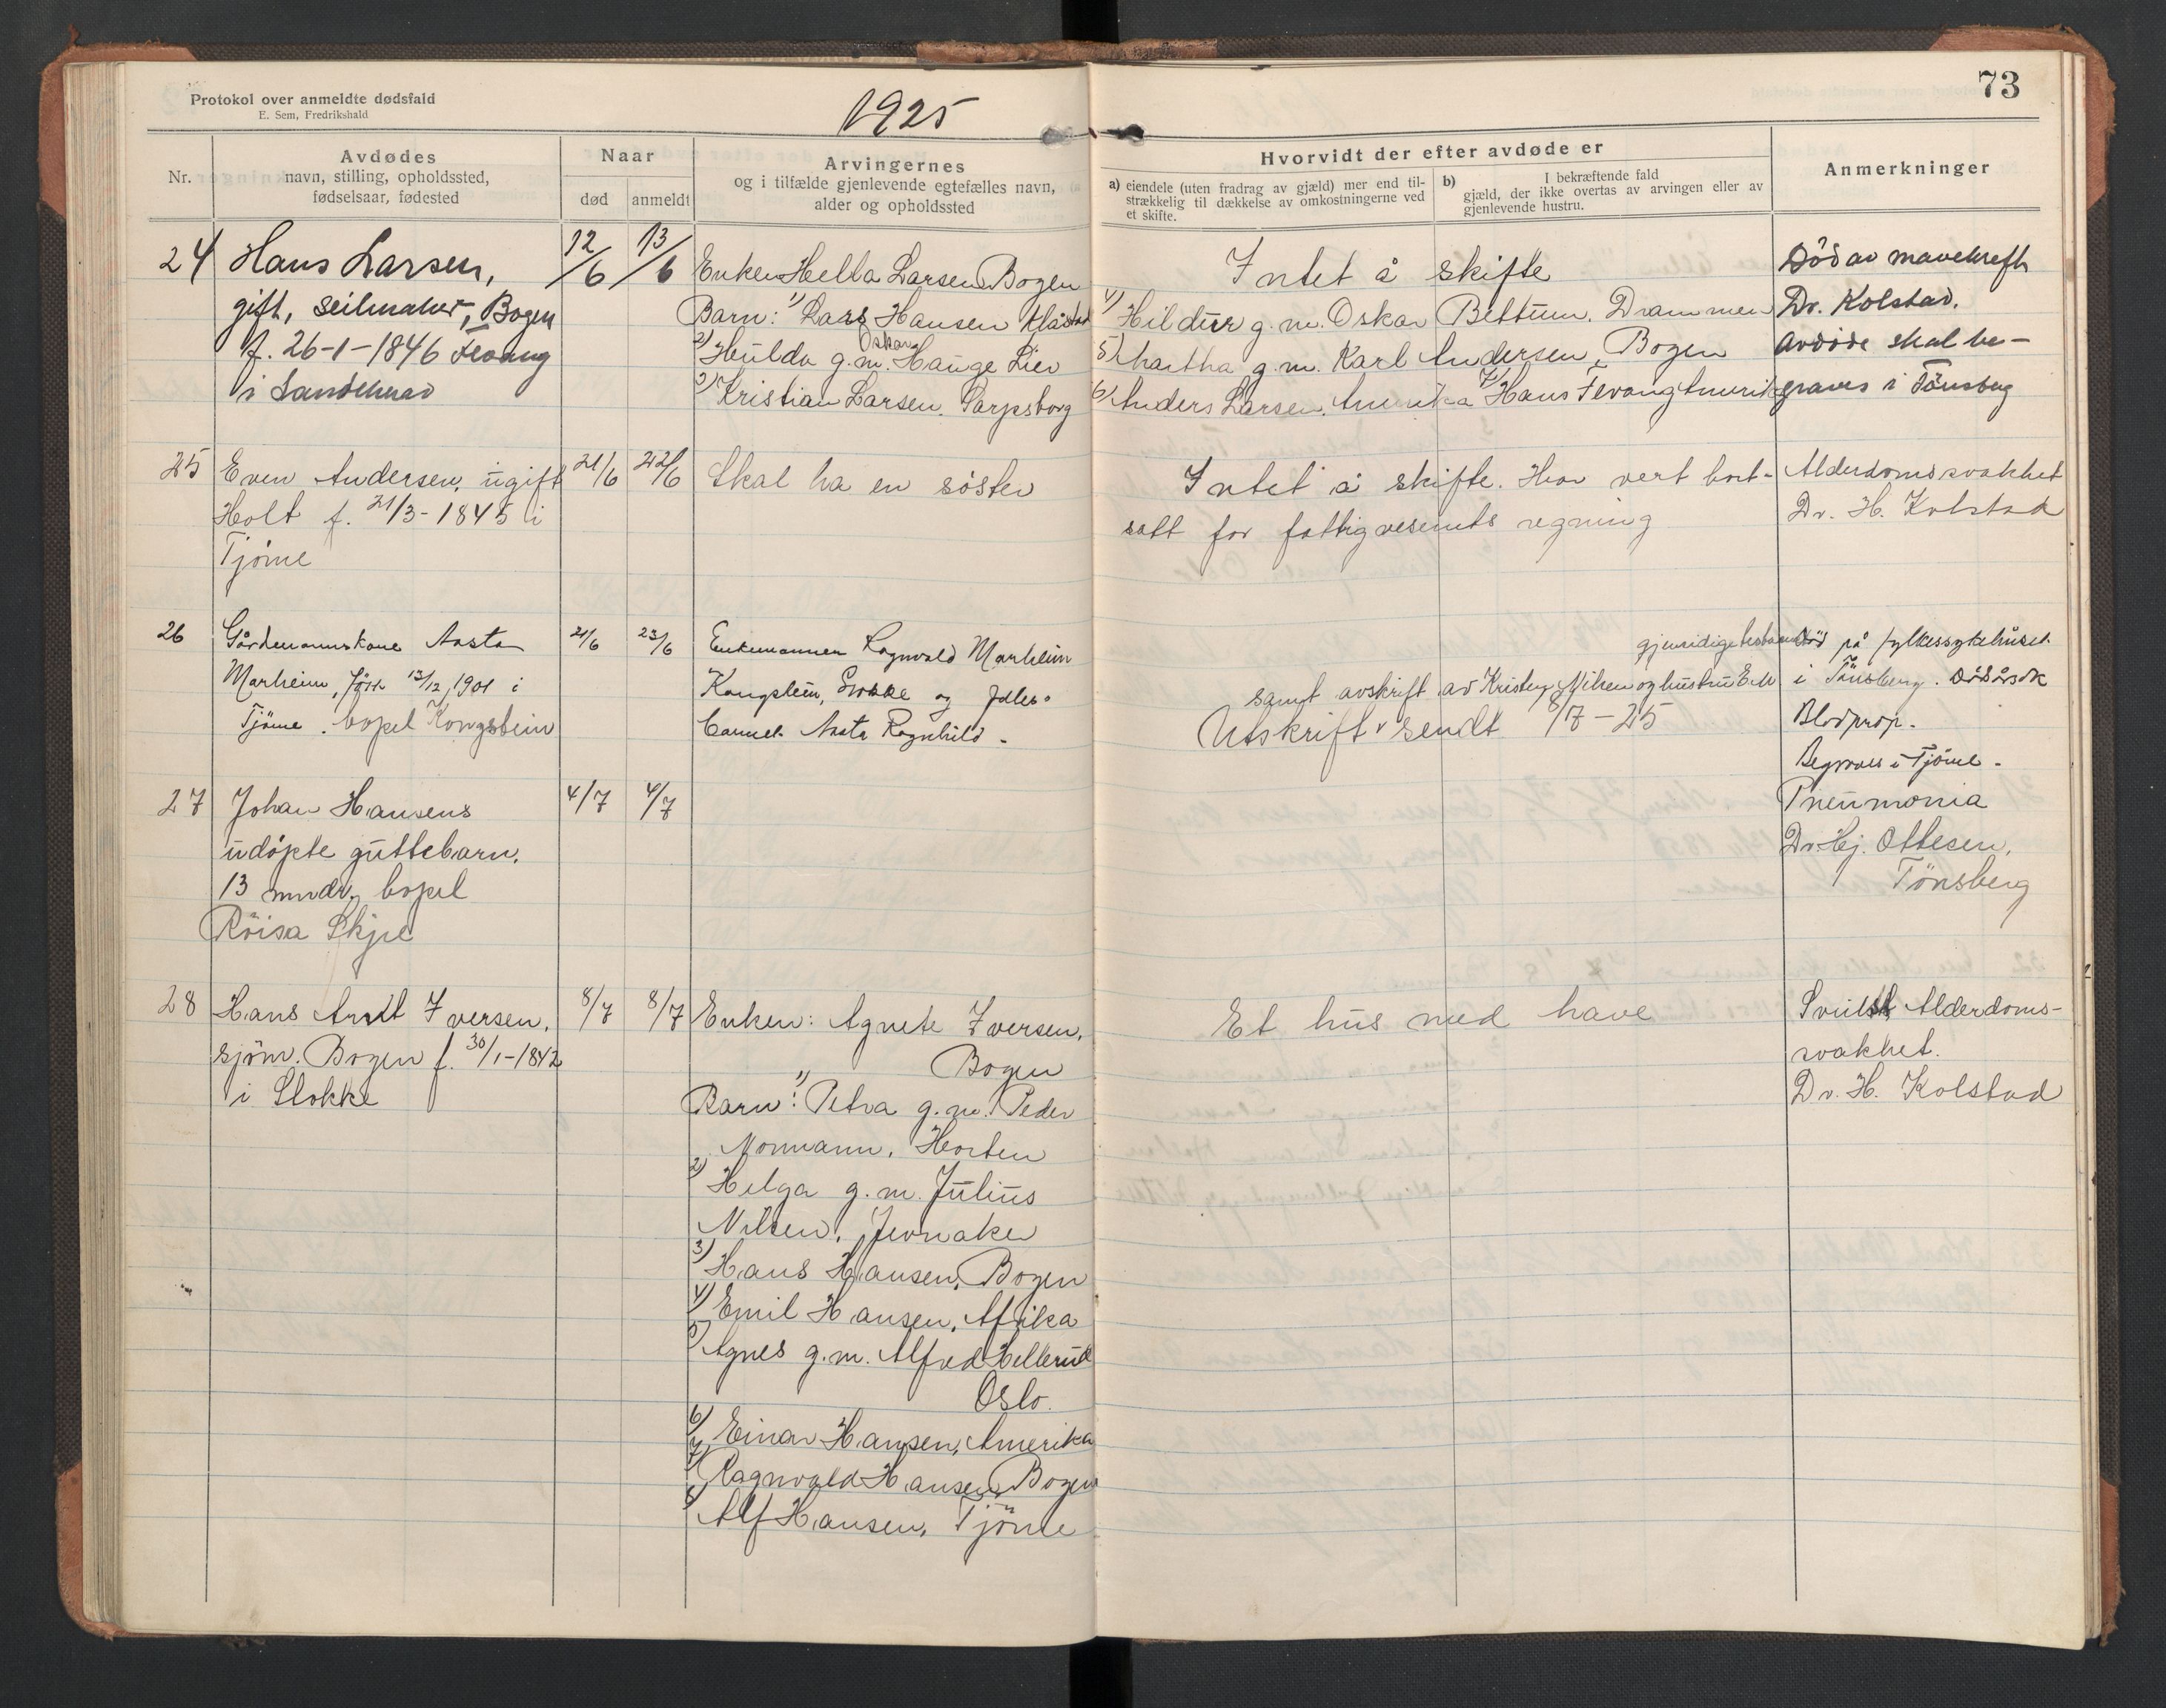 Protokol over anmeldte dødsfald
E. Sem, Fredrikshald
1925
73
Nr.
Avdødes
navn, stilling, opholdssted,
fødselsaar, fødested
Naar
død
anmeldt
Arvingernes
og i tilfælde gjenlevende egtefælles navn,
alder og opholdssted
Hvorvidt der efter avdøde er
a) eiendele (uten fradrag av gjæld) mer end til-
strækkelig til dækkelse av omkostningerne ved
et skifte.
b) I bekræftende fald
gjæld, der ikke overtas av arvingen eller av
gjenlevende hustru.
Anmerkninger
24
Hans Larsen,
gift, seilmaker, Bogen
f. 26-1-1846 Fevang
i Sandeherad
12/6
13/6
Enken Hella Larsen Bogen
Barn: 1) Lars Hansen Klåstad
2) Hulda g.m. Oskar Hauge Lier
3) Kristian Larsen, Sarpsborg
Intet å skifte
4) Hildur g.m. Oskar Bettum, Drammen
5) Martha g.m. Karl Andersen, Bogen
6) Anders Larsen, Amerika 7) Hans Fevang Amerika
Död av mavekreft
Dr. Kolstad.
Avdöde skal be-
graves i Tönsberg
25
Even Andersen, ugift
Holt f. 21/3-1845 i
Tjöme
21/6
22/6
Skal ha en söster
Intet å skifte. Har vert bort-
satt for fattigvesenets regning
Alderdomssvakhet
Dr. H. Kolstad
26
Gårdmannskone Aasta
Marheim, födt 12/12 1901 i
Tjöme. bopel Kongstein
21/6
23/6
Enkemannen Ragnvald Marheim
Kongstein, Stokke og felles-
barnet Aasta Ragnhild.
gjensidige testament
samt avskrift av Kristen Nilsen og hustru
Utskrift sendt 8/7-25
Död på fylkessykehuset
i Tönsberg. Dödsårsak
Blodprop.
Begraves i Tjöme.
27
Johan Hansens
udöpte guttebarn,
13 mndr, bopel
Röisa Skjee
4/7
4/7
Pneumonia
Dr. Hj. Ottesen,
Tönsberg
28
Hans Arnt Iversen,
sjöm. Bogen f. 30/1-1842
i Stokke
8/7
8/7
Enken: Agnete Iversen,
Bogen
Barn: 1) Petra g.m. Peder
Normann, Horten
2) Helga g.m. Julius
Nilsen, Jevnaker
3) Hans Hansen, Bogen
4) Emil Hansen, Afrika
5) Agnes g.m. Alfred Hellerud
Oslo.
6) Einar Hansen, Amerika
7) Ragnvald Hansen Bogen
8) Alf Hansen, Tjöme
Et hus med have
Alderdoms-
svakhet.
Dr. H. Kolstad